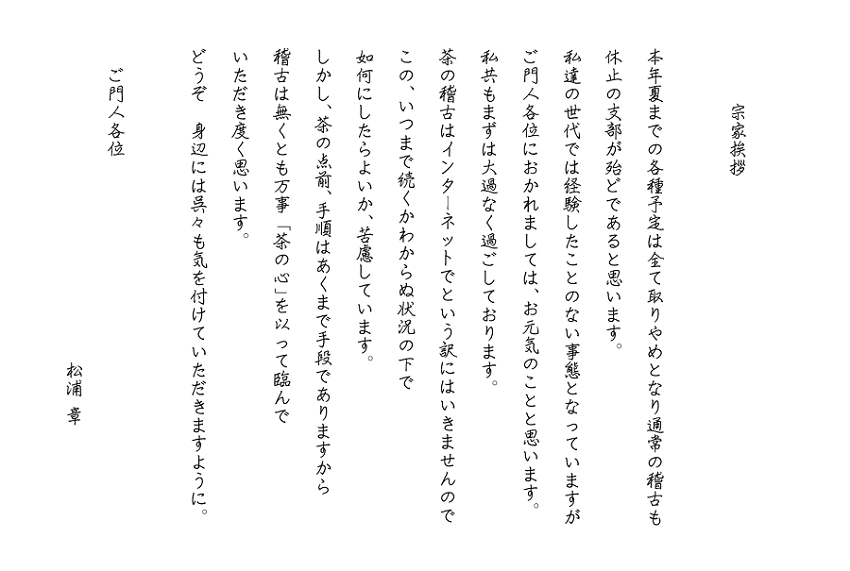 宗家挨拶
本年夏までの各種予定は全て取りやめとなり通常の稽古も
休止の支部が殆どであると思います。
私達の世代では経験したことのない事態となっていますが
ご門人各位におかれましては、お元気のことと思います。
私共もまずは大過なく過ごしております。
茶の稽古はインターネットでという訳にはいきませんので
この、いつまで続くかわからぬ状況の下で
如何にしたらよいか、苦慮しています。
しかし、茶の点前、手順はあくまで手段でありますから
稽古は無くとも万事「茶の心」を以って臨んで
いただき度く思います。
どうぞ　身辺には呉々も気を付けていただきますように。
ご門人各位
松浦 章